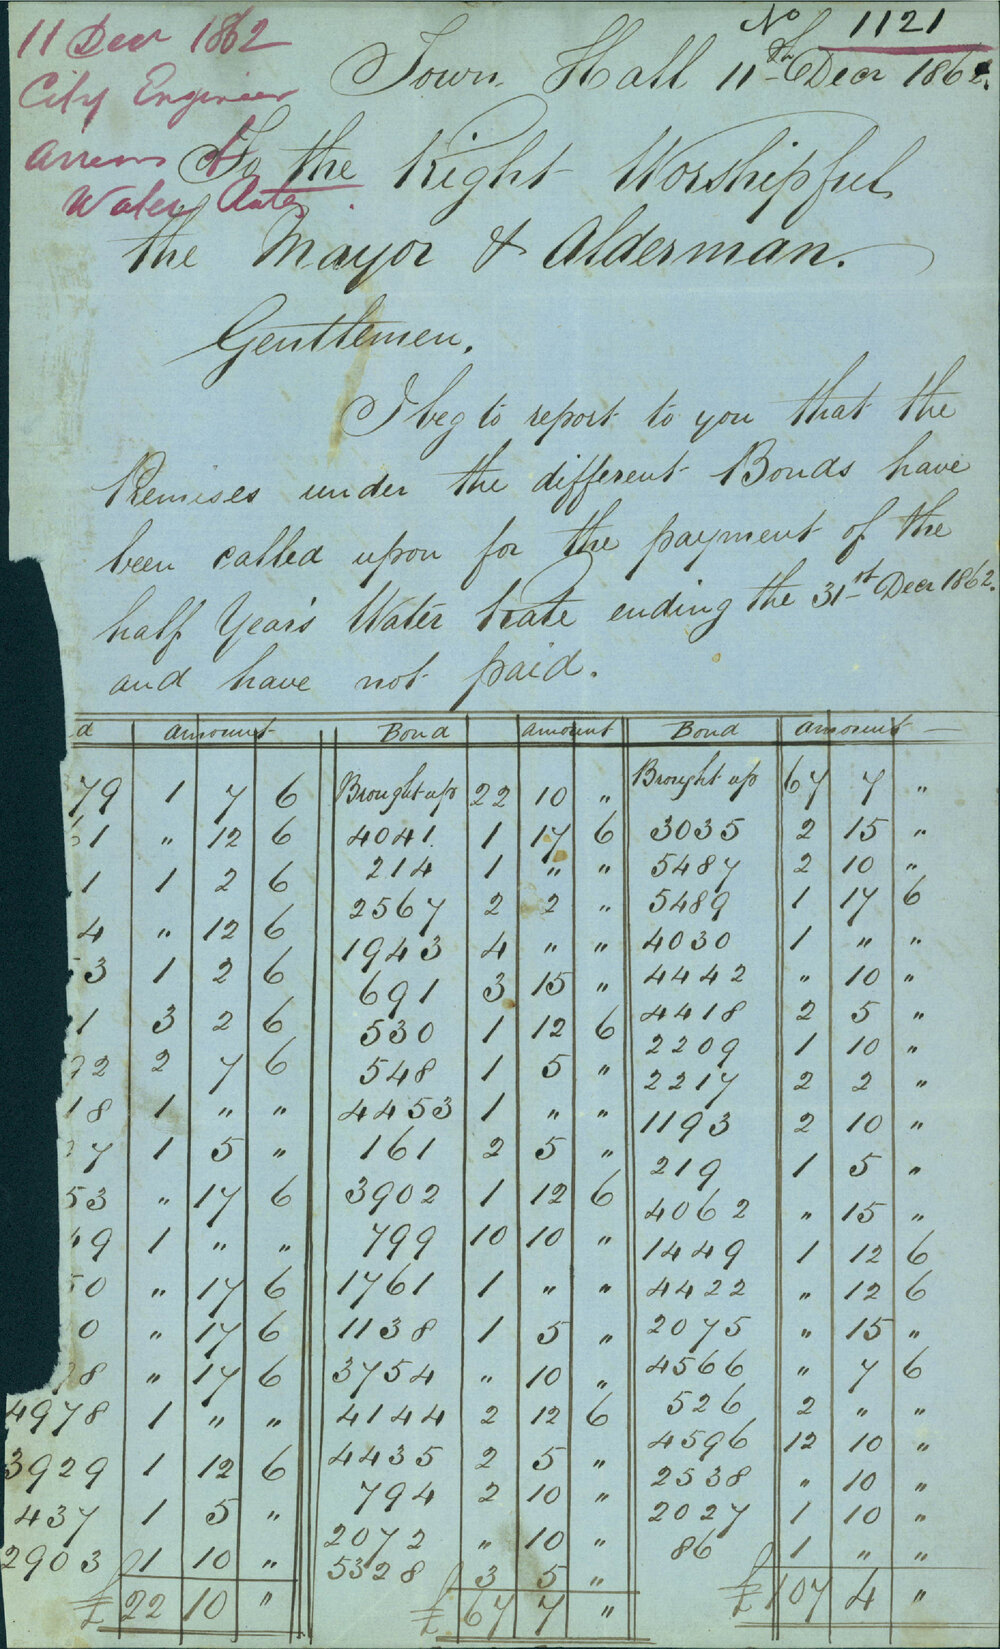 No 1121
11 Decr 1862
City Engineer
Arrears of
Water Rates.
Town Hall 11th Decr 1862.
To the Right Worshipful
the Mayor & Alderman.
Gentlemen.
I beg to report to you that the
Premises under the different Bonds have
been called upon for the payment of the
half Year's Water Rate ending the 31st Decr 1862.
and have not paid.
d Amount Bond Amount Bond Amount
79 1 7 6 Brought up 22 10 " Brought up 67 7 "
61 " 12 6 4041. 1 17 6 3035 2 15 "
1 1 2 6 214 1 " " 5487 2 10 "
4 " 12 6 2567 2 2 " 5489 1 17 6
3 1 2 6 1943 4 " " 4030 1 " "
1 3 2 6 691 3 15 " 4442 " 10 "
92 2 7 6 530 1 12 6 4418 2 5 "
18 1 " " 548 1 5 " 2209 1 10 "
7 1 5 " 4453 1 " " 2217 2 2 "
53 " 17 6 161 2 5 " 1193 2 10 "
49 1 " " 3902 1 12 6 219 1 5 "
50 " 17 6 799 10 10 " 4062 " 15 "
0 " 17 6 1761 1 " " 1449 1 12 6
98 " 17 6 1138 1 5 " 4422 " 12 6
4978 1 " " 3754 " 10 " 2075 " 15 "
3929 1 12 6 4144 2 12 6 4566 " 7 6
437 1 5 " 4435 2 5 " 526 2 " "
2903 1 10 " 794 2 10 " 4596 12 10 "
2072 " 10 " 2538 " 10 "
5328 3 5 " 2027 1 10 "
86 1 " "
£ 22 10 " £ 67 7 " £ 107 4 "